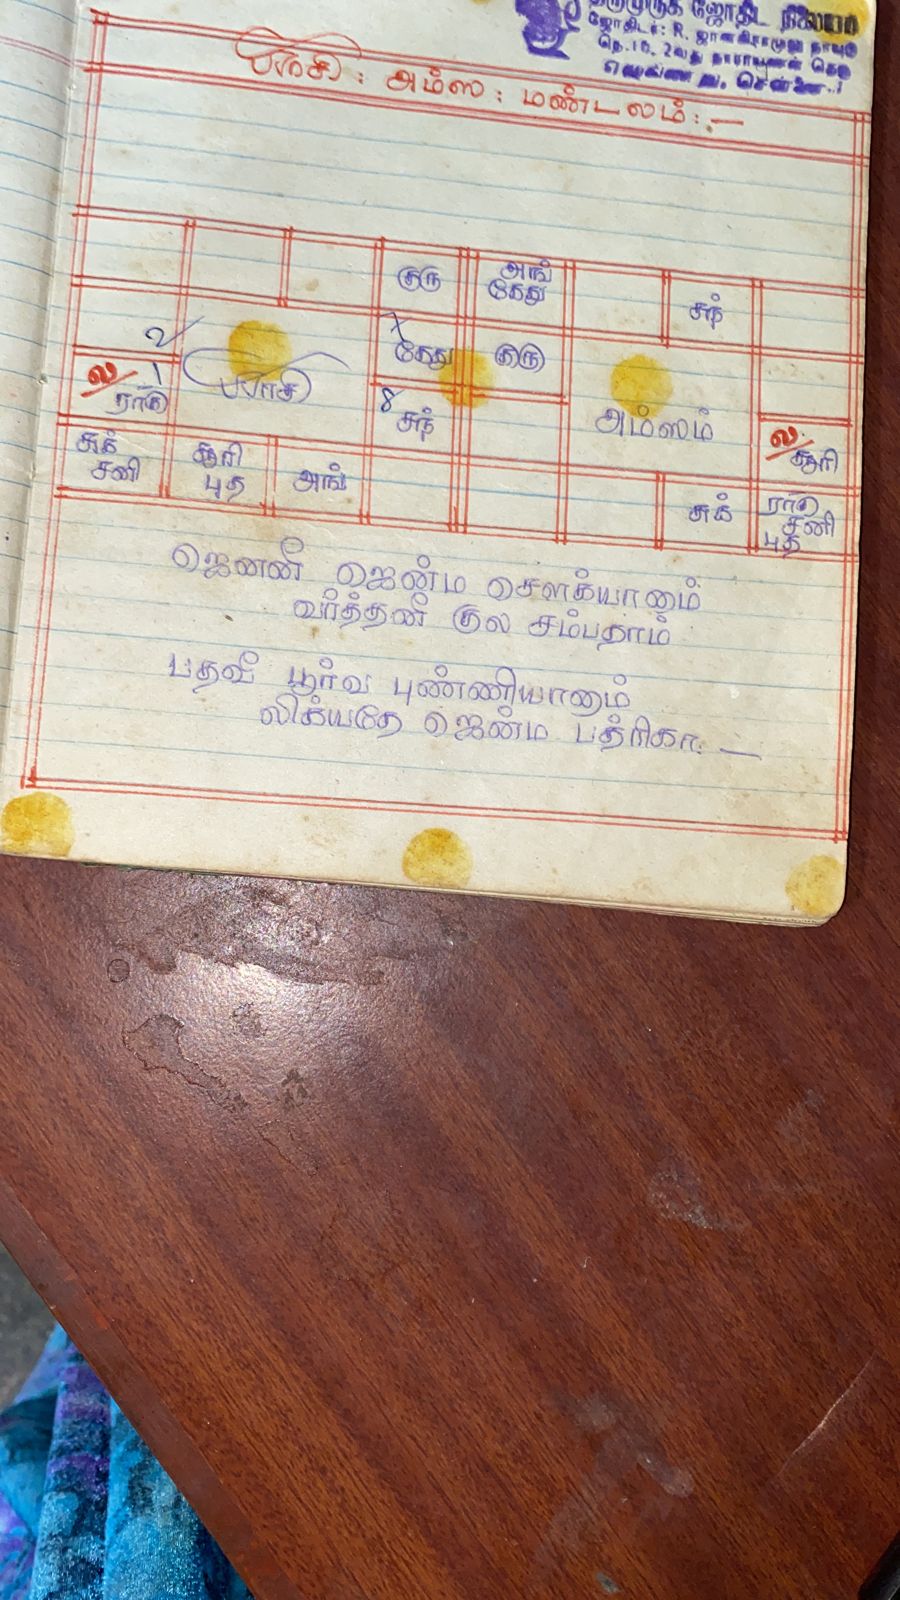 ஜோதிட நிலையம்
ஜோதிடர்: R. ஜானகிராமுலு நாயுடு
நெ.10, 2வது நாராயணன் தெரு
சென்னை-1
ராசி : அம்ஸ : மண்டலம் :-
குரு அங் கேது சந்
2 7 கேது குரு
ல/ 1 ராகு ராசி 8 சந் அம்ஸம் ல/ சூரி
சுக் சனி சூரி புத அங் சுக் ராகு சனி புத
ஜெனனீ ஜென்ம சௌக்யானாம்
வர்த்தனீ குல சம்பதாம்
பதவீ பூர்வ புண்ணியானாம்
லிக்யதே ஜென்ம பத்ரிகா. —